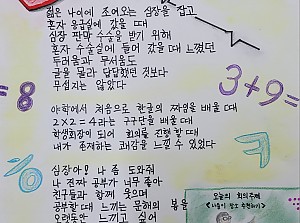 젊은 나이에 조여오는 심장을 잡고
혼자 응급실에 갔을 때
심장 판막 수술을 받기 위해
혼자 수술실에 들어 갔을 때 느꼈던
두려움과 무서움도
글을 몰라 답답했던 것보다
무섭지는 않았다
3+9=
=8
야학에서 처음으로 한글의 짜임을 배울 때
2×2=4라는 구구단을 배울 때
학생회장이 되어 회의를 진행 할 때
내가 존재하는 쾌감을 느낄 수 있었다
심장아! 나 좀 도와줘
나 진짜 공부가 너무 좋아
친구들과 함께 웃으며
공부할 때 느끼는 문해의 봄을
오랫동안 느끼고 싶어
오늘의 회의주제